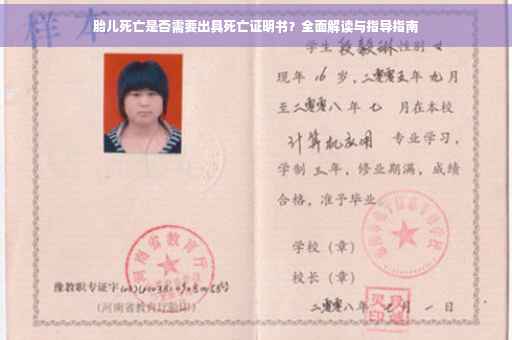 胎儿死亡是否需要出具死亡证明书？全面解读与指导指南
样本
学生 段毅琳 性别 女
现年 16 岁，二零零五年 九月
至二零零八年 七 月在本校
计算机应用 专业学习，
学制 三 年，修业期满，成绩
合格，准予毕业
学校（章）
校长（章）
二零零八年 七 月 一 日
河南省教育厅
豫教职专证字
（河南省教育厅验印）